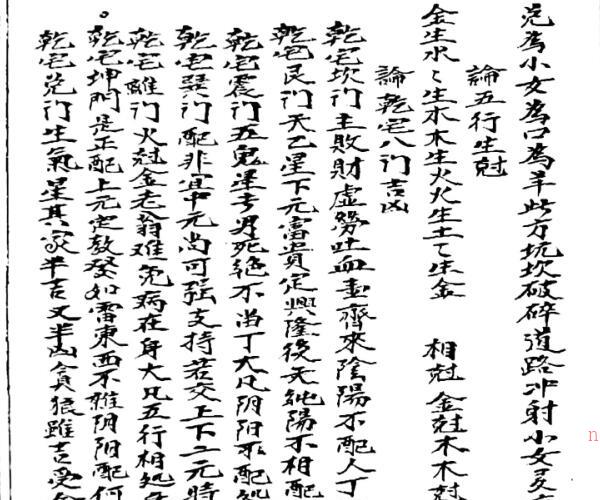 兑為小女為口為羊此方坑坎破碎道路冲射小女灵
論五行生尅
金生水〻生木木生火火生土〻生金 相尅 金尅木木尅
論乾宅八门吉凶
乾宅坎门主敗財虛勞吐血壶齊來陰陽不配人丁
乾宅艮门天乙星下元富貴定興隆後天純陽不相配
乾宅震门五鬼星老男死絶不当丁大凡阴阳不配処
乾宅巽门配非宜中元尚可强支持若交上下二元時
乾宅離门火尅金老翁难免病在身大凡五行相処
乾宅坤门是正配上元定教發如雷東西不雜阴阳配何
乾宅兑门生氣星其家半吉又半凶貪狼雖吉受金
n